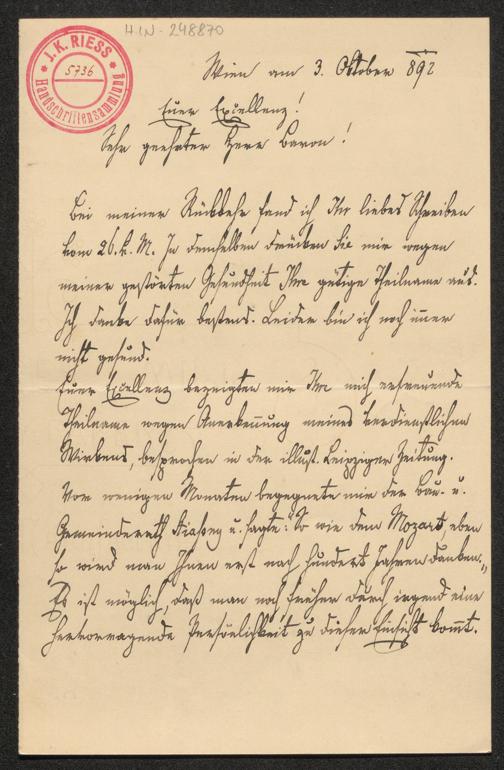 H.I.N.-248870
J. K. RIESS
5736
Handschriftensammlung
Wien am 3. Oktober 892
Euer Excellenz!
Sehr geehrter Herr Baron!
Bei meiner Rückkehr fand ich Ihr liebes Schreiben
vom 26. v. M. In demselben drücken Sie mir wegen
meiner gestörten Gesundheit Ihre gütige Theilname aus.
Ich danke dafür bestens. Leider bin ich noch imer
nicht gesund.
Euer Excellenz bezeigten mir Ihre mich erfreuende
Theilname wegen Anerkennung meines verdienstlichen
Wirkens, besprochen in der illust. Leipziger Zeitung.
Vor wenigen Monaten begegnete mir der Bau- u.
Gemeinderath u. sagte: "So wie dem Mozart, eben
so wird man Ihnen erst nach hundert Jahren danken."
Es ist möglich, daß man noch früher durch irgend eine
hervorragende Persönlichkeit zu dieser Einsicht kommt.